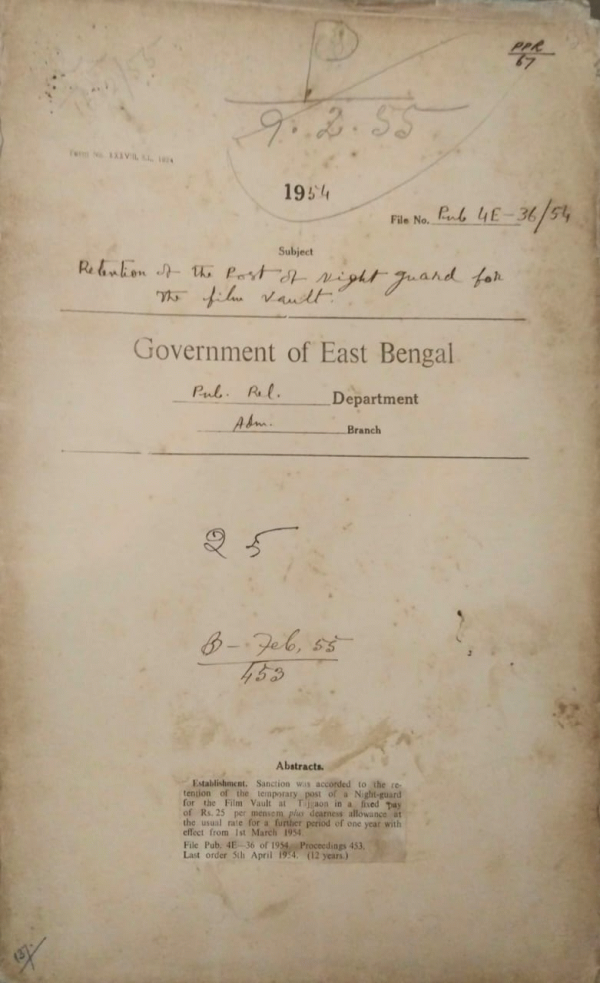 PPR
67
B
9. 2. 55
1954
File No. Pub 4E-36/54
Subject
Retention of the Post of night guard for
the film vault.
Government of East Bengal
Pub. Rel. Department
Adm. Branch
25
B - Feb, 55
453
Abstracts.
Establishment. Sanction was accorded to the re-
tention of the temporary post of a Night-guard
for the Film Vault at Tejgaon in a fixed pay
of Rs. 25 per mensem plus dearness allowance at
the usual rate for a further period of one year with
effect from 1st March 1954.
File Pub. 4E-36 of 1954. Proceedings 453.
Last order 5th April 1954. (12 years.)